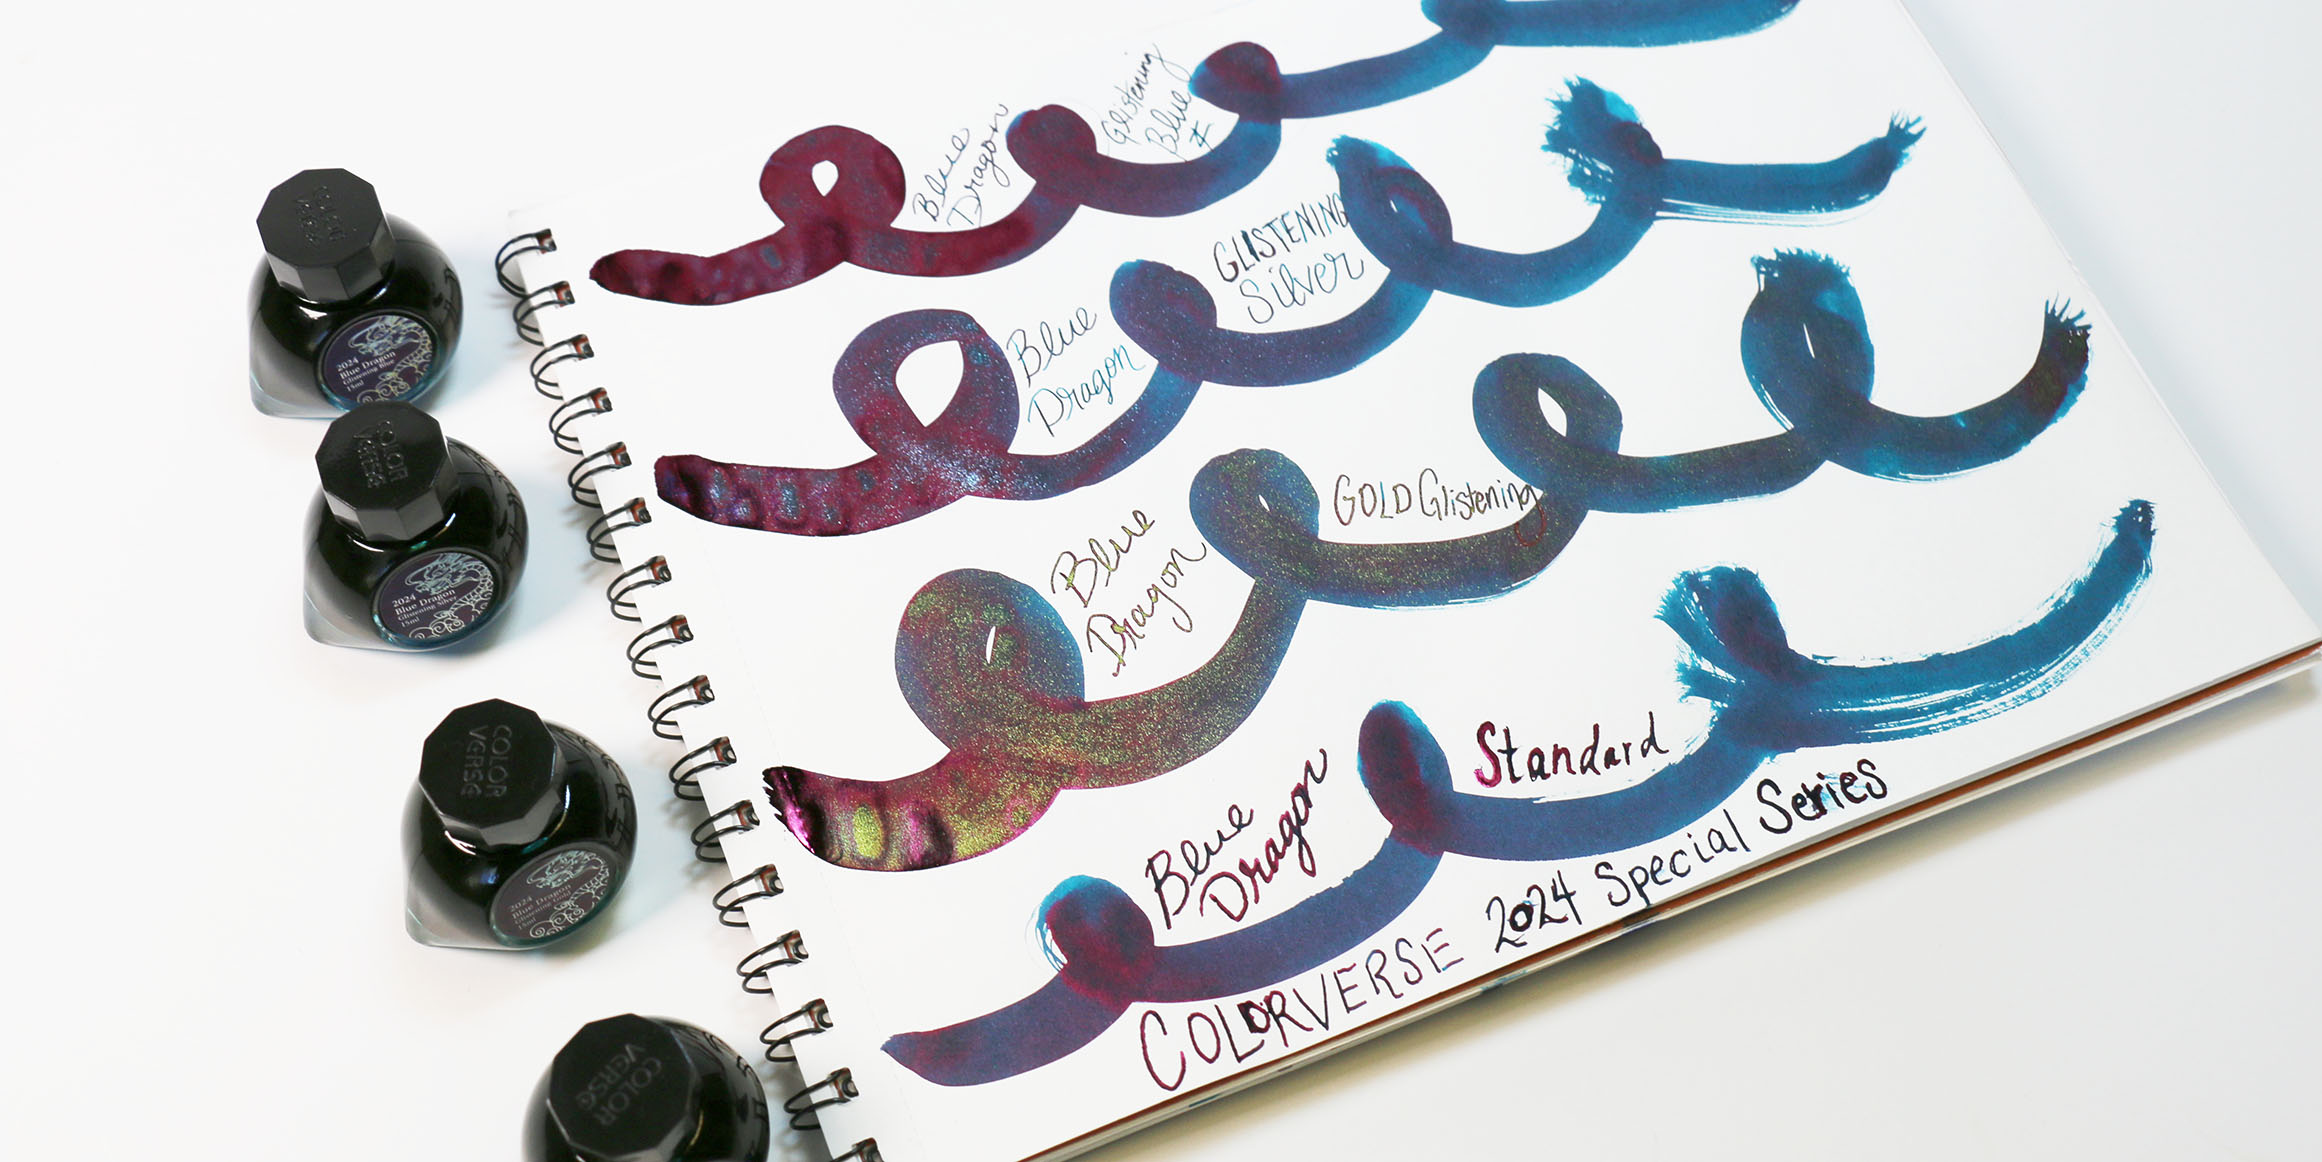 COLOR
VERSE
2024
Blue Dragon
Glistening Blue
15ml
COLOR
VERSE
2024
Blue Dragon
Glistening Silver
15ml
COLOR
VERSE
2024
Blue Dragon
Glistening Gold
15ml
COLOR
VERSE
Blue
Dragon
Glistening
Blue
Blue
Dragon
GLISTENING
Silver
Blue
Dragon
GOLD Glistening
Blue
Dragon
Standard
COLORVERSE 2024 Special Series